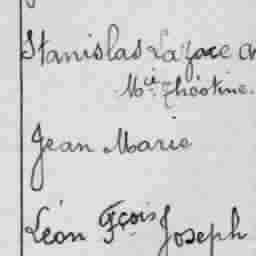 Stanislas Lazare
Mce Théotine.
Jean Marie
Léon Fçois Joseph